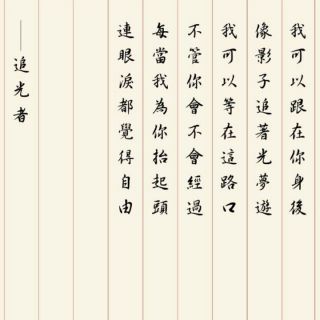 我可以跟在你身後
像影子追著光夢遊
我可以等在這路口
不管你會不會經過
每當我為你抬起頭
連眼淚都覺得自由
——追光者